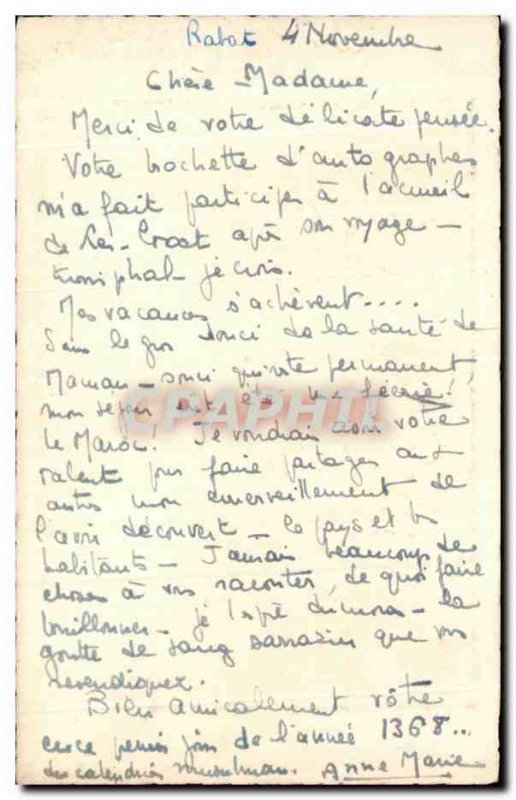 Rabat 4 Novembre
Chère Madame,
Merci de votre délicate pensée.
Votre brochette d'autographes
m'a fait participer à l'accueil
de après son voyage -
triomphal - je crois.
Mes vacances s'achèvent....
Sans le gros souci de la santé de
Maman - souci qui reste permanent,
mon séjour eut été une féerie!
le Maroc. Je voudrais avoir votre
talent pour faire partager aux
autres mon émerveillement de
l'avoir découvert - le pays et les
habitants - J'aurai beaucoup de
choses à vous raconter, de quoi faire
bouillonner - je l'espère du moins - la
goutte de sang sarrazin que vous
revendiquez.
Bien amicalement vôtre
ce premier jour de l'année 1368..
du calendrier musulman. Anne Marie
CPAPHIL